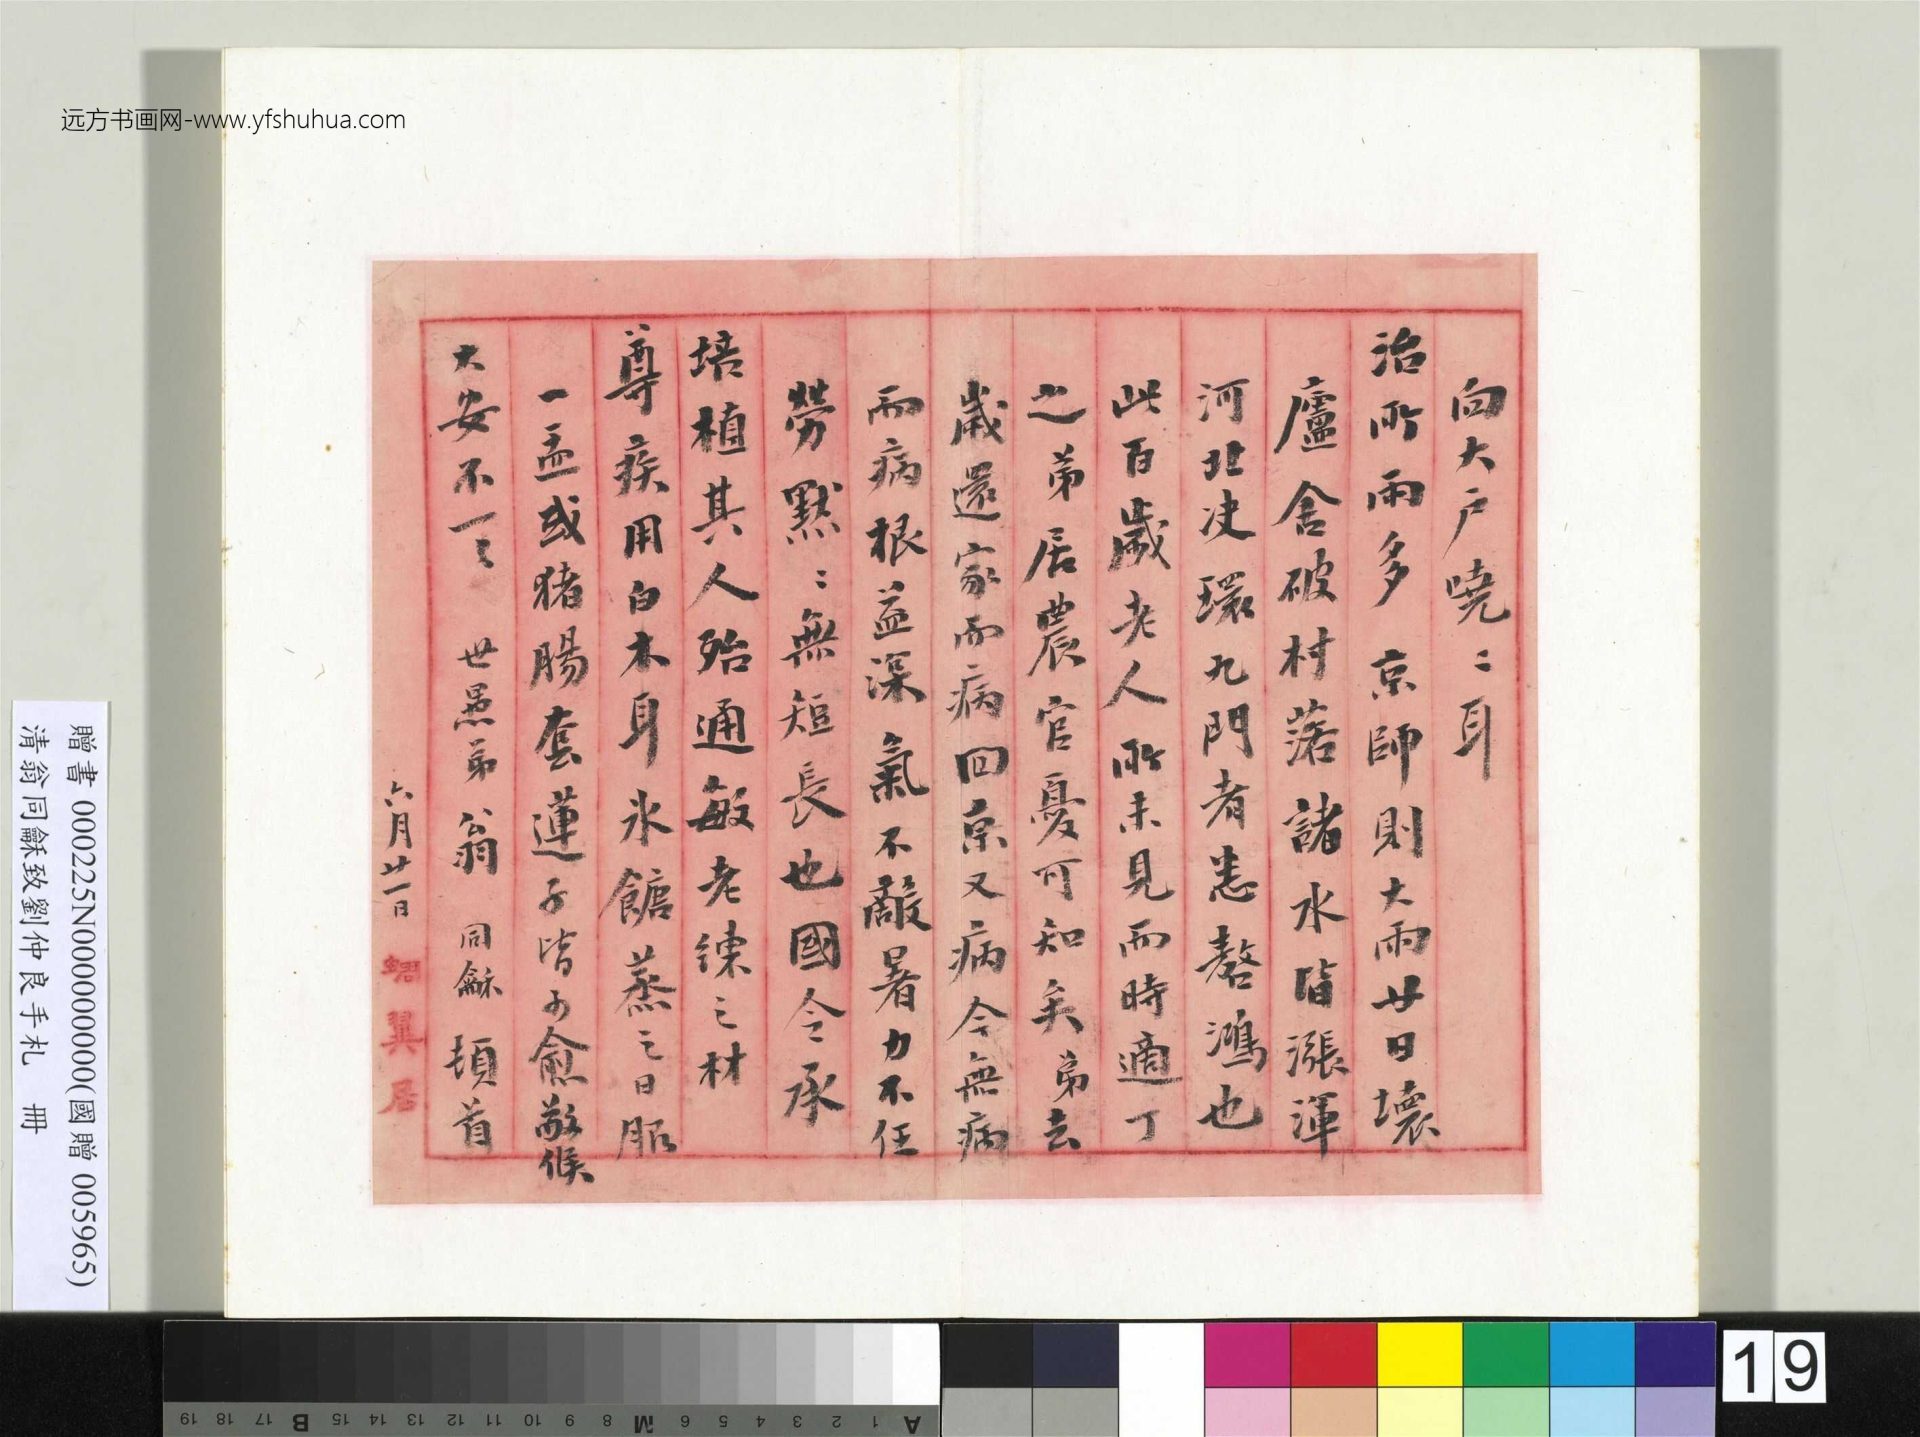 远方书画网-www.yfshuhua.com
向大户嘵〻耳
治所雨多京師則大雨廿日壞
廬舍破村落諸水皆漲渾
河北決環九門者悉嗸鴻也
此百歲老人所未見而時適丁
之弟居農官憂可知矣弟去
歲還家而病回京又病今無病
而病根益深氣不敵暑力不任
勞默〻無短長也國令承
培植其人殆通敏老練之材
尊疾用白木耳冰餹蒸之日服
一盂或猪腸套蓮子皆可愈敬候
大安不一〻 世愚弟翁同龢頓首
六月廿一日
蜩翼居
贈書 000225N000000000(國贈 005965)
清翁同龢致劉仲良手札 冊
19
19 18 17 B 16 15 14 13 12 11 10 9 8 M 7 6 5 4 3 2 1 A